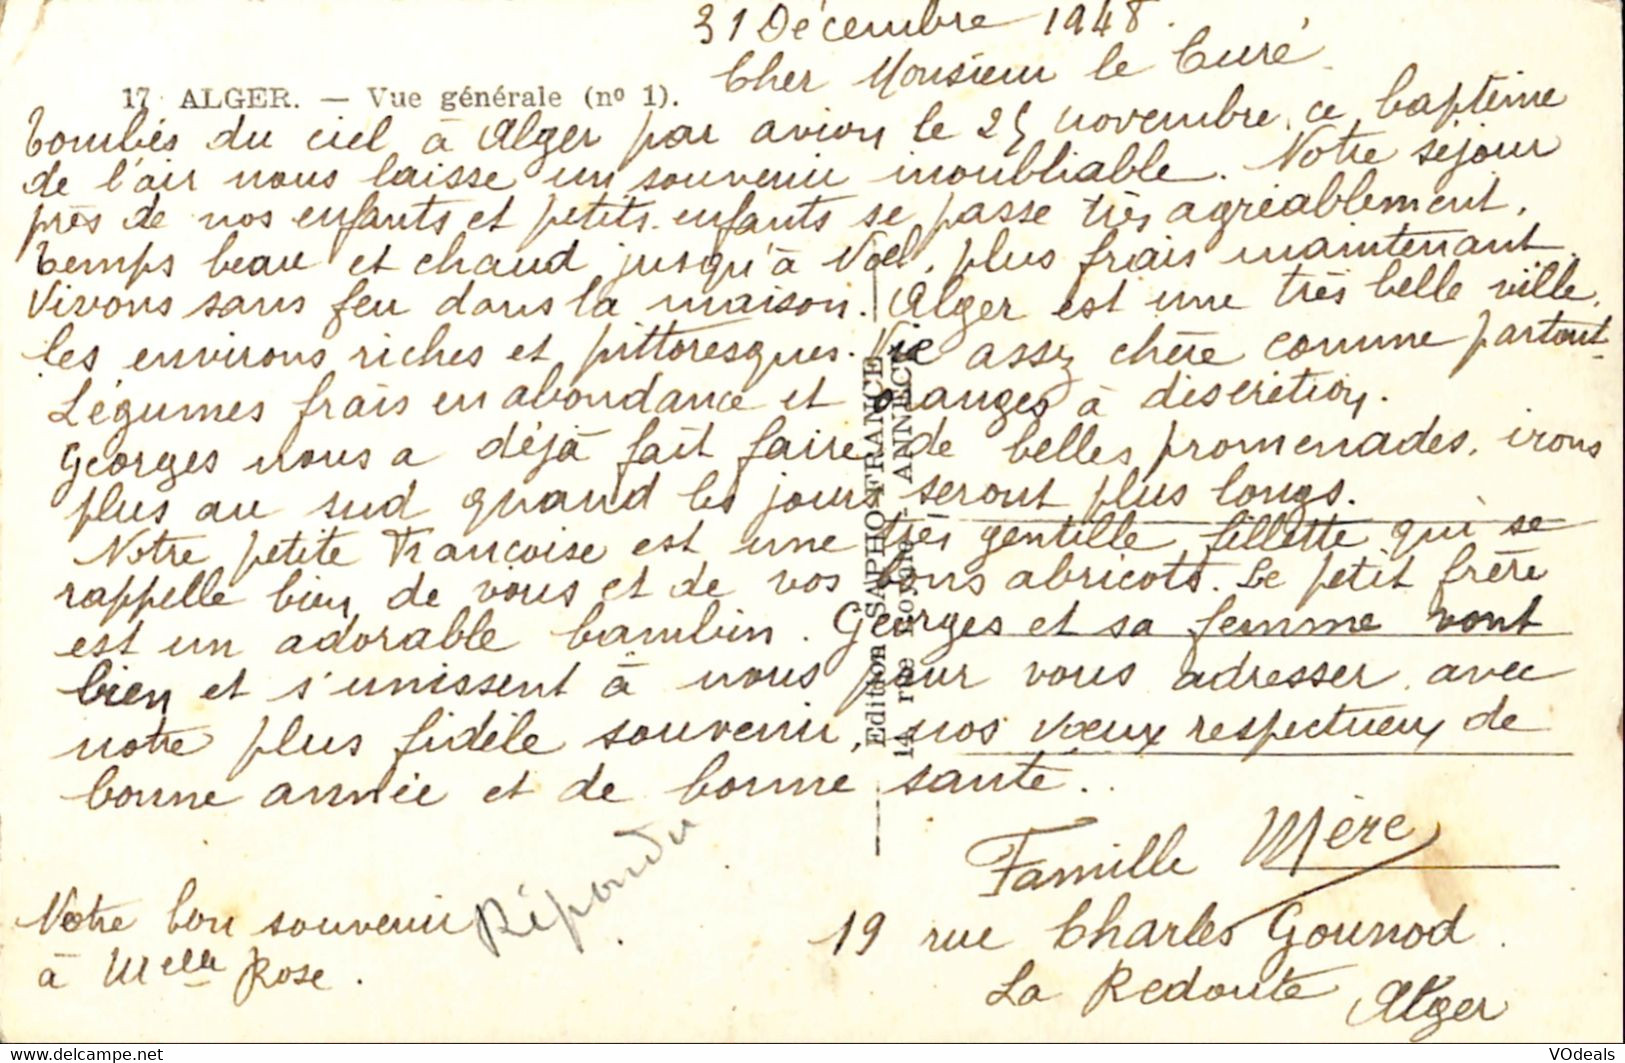 31 Décembre 1948.
Cher Monsieur le Curé
17 ALGER. — Vue générale (nº 1).
Tombés du ciel à Alger par avion le 25 novembre, ce baptême
de l'air nous laisse un souvenir inoubliable. Notre séjour
près de nos enfants et petits-enfants se passe très agréablement.
Temps beau et chaud jusqu'à Noël, plus frais maintenant.
Vivons sans feu dans la maison. Alger est une très belle ville,
les environs riches et pittoresques. Vie assez chère comme partout
Légumes frais en abondance et oranges à discrétion.
Georges nous a déjà fait faire de belles promenades, irons
plus au sud quand les jours seront plus longs.
Notre petite Françoise est une très gentille fillette qui se
rappelle bien de vous et de vos bons abricots. Le petit frère
est un adorable bambin. Georges et sa femme vont
bien et s'unissent à nous pour vous adresser avec
notre plus fidèle souvenir, nos vœux respectueux de
bonne année et de bonne santé.
Famille Mère
19 rue Charles Gounod
La Redoute Alger
Notre bon souvenir
à Melle Rose.
Répondu
Edition SAPHO-FRANCE
14, rue Royale - ANNECY
VOdeals